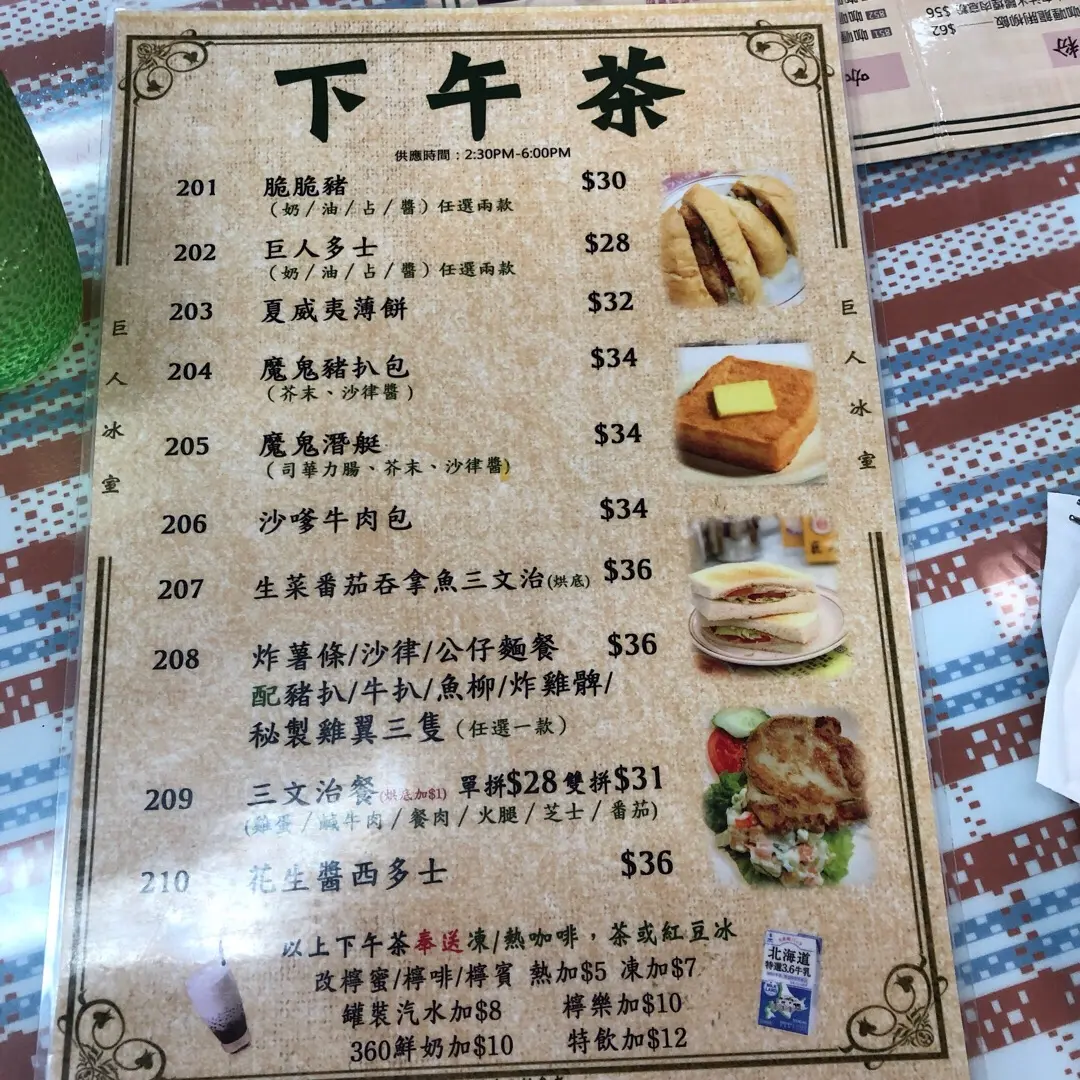 下午茶
供應時間：2:30PM-6:00PM
201 脆脆豬 $30
（奶/油/占/醬）任選兩款
202 巨人多士 $28
（奶/油/占/醬）任選兩款
203 夏威夷薄餅 $32
204 魔鬼豬扒包 $34
（芥末、沙律醬）
205 魔鬼潛艇 $34
（司華力腸、芥末、沙律醬）
206 沙嗲牛肉包 $34
207 生菜番茄吞拿魚三文治(烘底) $36
208 炸薯條/沙律/公仔麵餐 $36
配豬扒/牛扒/魚柳/炸雞髀/
秘製雞翼三隻（任選一款）
209 三文治餐(烘底加$1) 單拼$28 雙拼$31
(雞蛋/鹹牛肉/餐肉/火腿/芝士/番茄)
210 花生醬西多士 $36
以上下午茶奉送凍/熱咖啡，茶或紅豆冰
改檸蜜/檸啡/檸賓 熱加$5 凍加$7
罐裝汽水加$8 檸樂加$10
360鮮奶加$10 特飲加$12
巨人冰室
巨人冰室
北海道
特選3.6牛乳
$56
$62
852
851
粉
咖